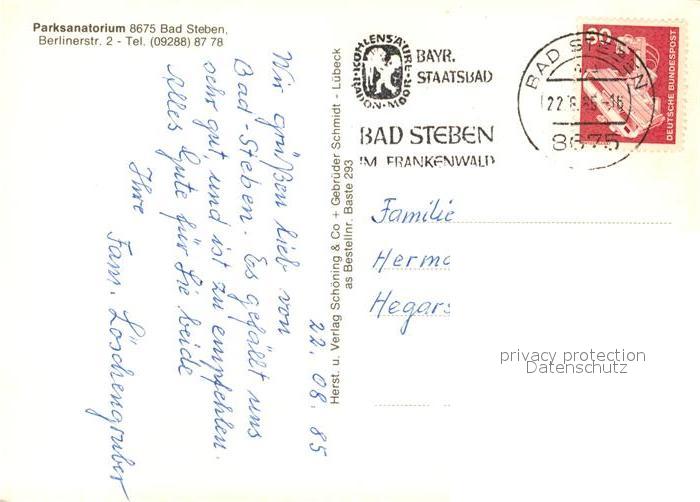 Parksanatorium 8675 Bad Steben,
Berlinerstr. 2 - Tel. (09288) 87 78
22. 08. 85
Wir grüßen lieb von
Bad-Steben. Es gefällt uns
sehr gut und ist zu empfehlen.
Alles Gute für Sie beide
Ihre
Fam. Löschengruber
Herst. u. Verlag Schöning & Co + Gebrüder Schmidt - Lübeck
as Bestellnr. Baste 293
RADON-MOOR-KOHLENSÄURE
BAYR.
STAATSBAD
BAD STEBEN
IM FRANKENWALD
BAD STEBEN
22.8.85-16
8675
DEUTSCHE BUNDESPOST
Familie
Herma
Hegar
privacy protection
Datenschutz